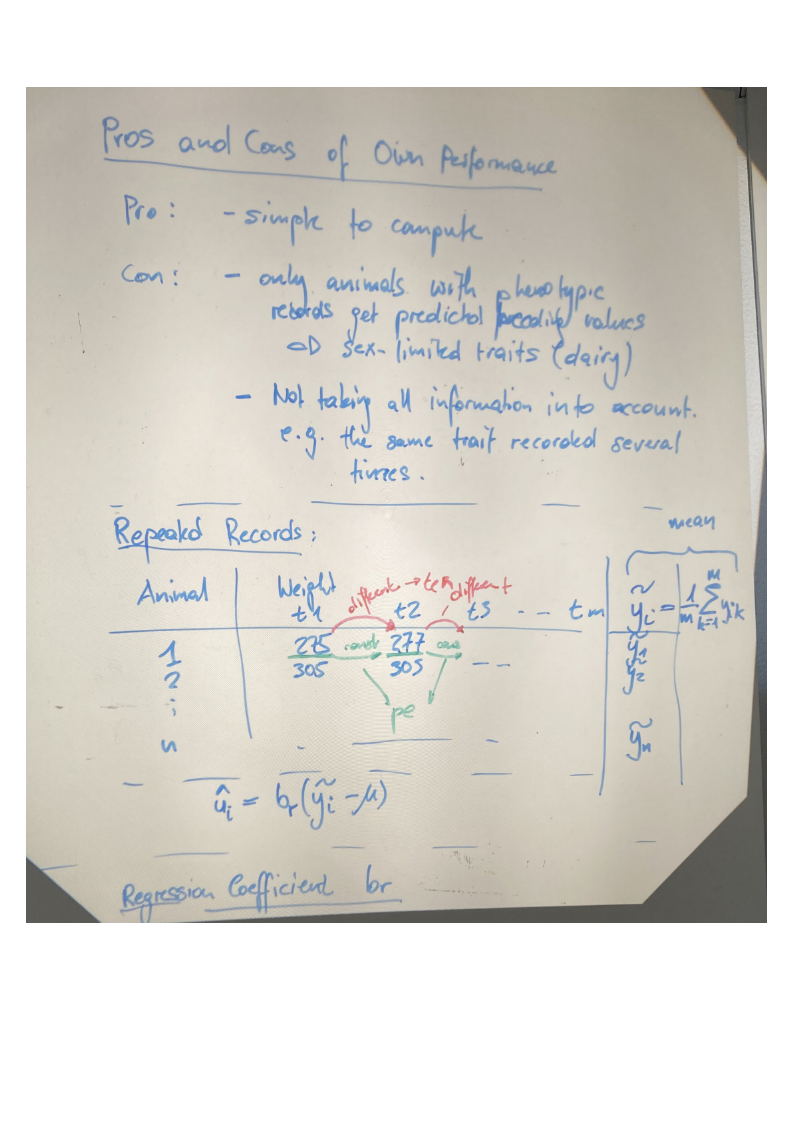 Pros and Cons of Own Performance
Pro: - simple to compute
Con: - only animals with phenotypic
records get predicted breeding values
⇒ sex-limited traits (dairy)
- Not taking all information into account.
e.g. the same trait recorded several
times.
Repeated Records:
mean
Animal Weight different → te different
t1 t2 t3 - - tm ỹi = 1/m Σ_{k=1}^{m} yik
1 275 const 277 ỹ1
2 305 305 - - ỹ2
⋮ pe
n ỹn
ûi = br(ỹi - μ)
Regression Coefficient br